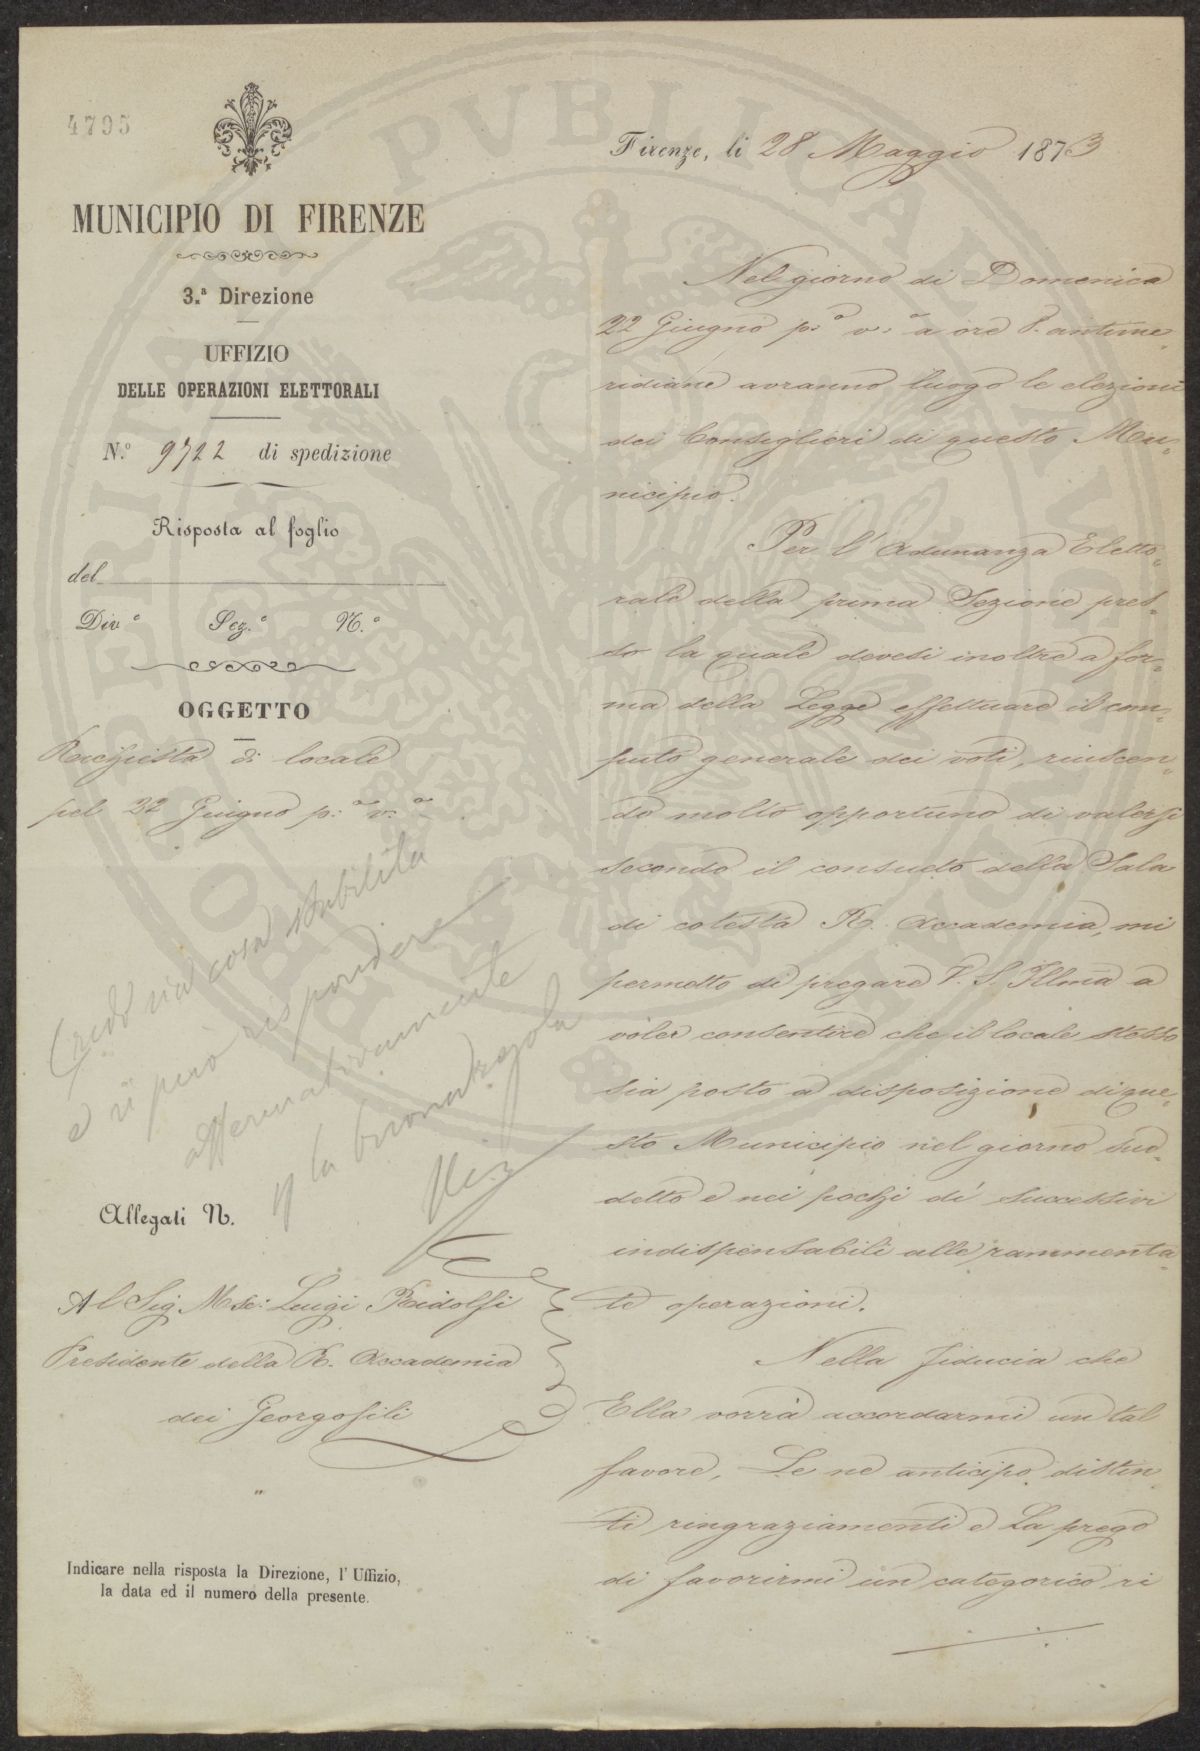 4795
MUNICIPIO DI FIRENZE
3.ª Direzione
UFFIZIO
DELLE OPERAZIONI ELETTORALI
N.º 9722 di spedizione
Risposta al foglio
del
Div.ᵉ Sez.ᵉ N.º
OGGETTO
Richiesta di locale
pel 22 Giugno p.º v.º
Credo sia cosa stabilita
e si può rispondere
affermativamente
Allegati N.
Al Sig. Mse: Luigi Ridolfi
Presidente della R. Accademia
dei Georgofili
Indicare nella risposta la Direzione, l'Uffizio,
la data ed il numero della presente.
Firenze, li 28 Maggio 1873
Nel giorno di Domenica
22 Giugno p.º v.º a ore 8. antime-
ridiane avranno luogo le elezioni
dei Consiglieri di questo Mu-
nicipio.
Per l'Adunanza Eletto-
rale della prima Sezione pres-
so la quale devesi inoltre a for-
ma della Legge effettuare il com-
puto generale dei voti, riuscen-
do molto opportuno di valersi
secondo il consueto della Sala
di cotesta R. Accademia, mi
permetto di pregare V. S. Illma a
voler consentire che il locale stesso
sia posto a disposizione di que-
sto Municipio nel giorno sud-
detto e nei pochi dì successivi
indispensabili alle rammenta-
te operazioni.
Nella fiducia che
Ella vorrà accordarmi un tal
favore, Le ne anticipo distin-
ti ringraziamenti e La prego
di favorirmi un categorico ri
BIBLIOTHECA PVBLICAE FLORENTINAE PROSPERITATI AVGENDAE